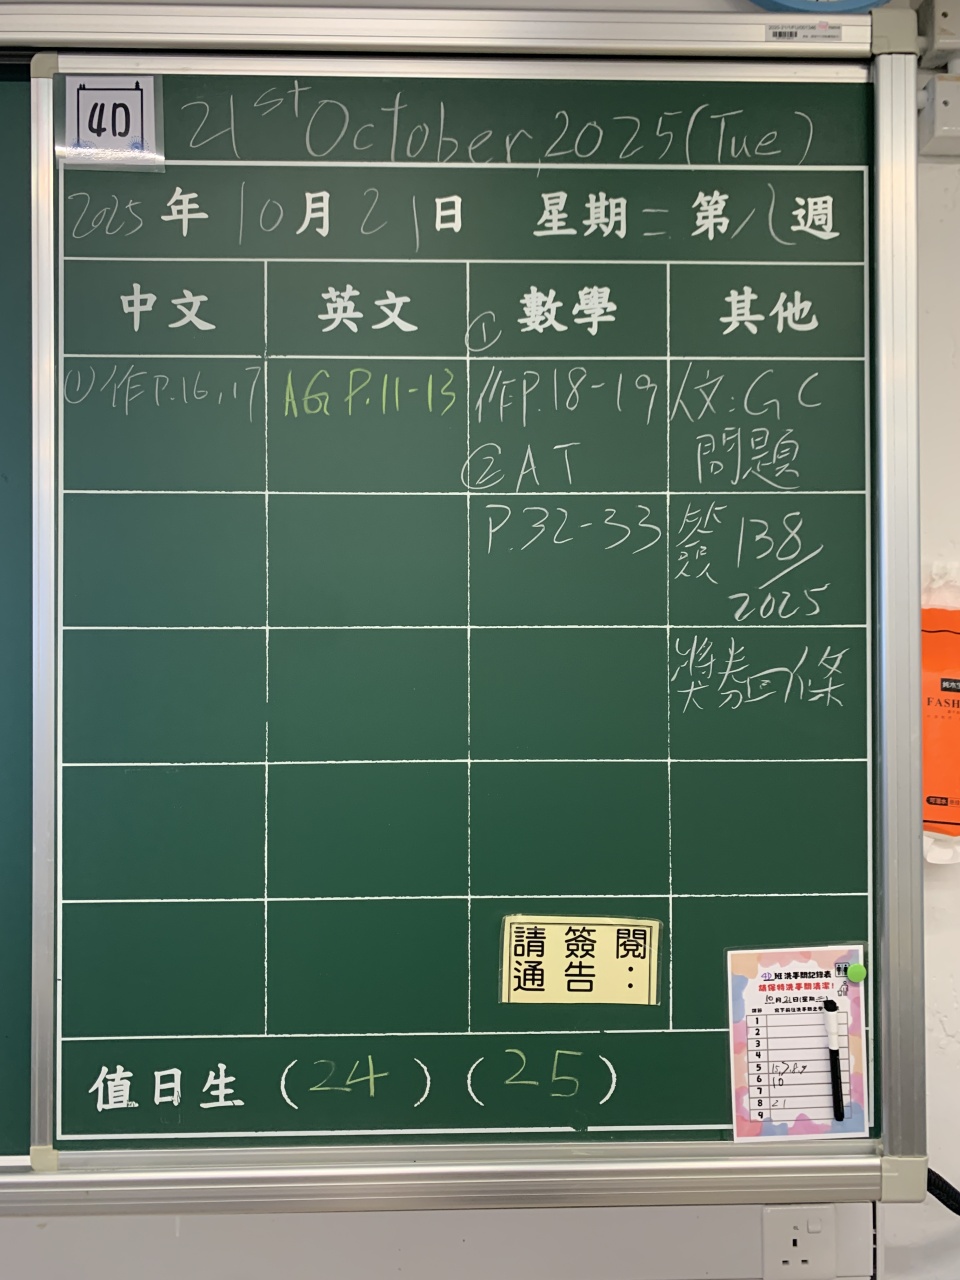 4D
21st October, 2025 (Tue)
2025年10月21日 星期二 第八週
中文 英文 數學 其他
①作P.16,17
AG P.11-13
①作P.18-19
②AT
P.32-33
人文:GC
問題
簽138/2025
獎券回條
請簽閱
通告:
值日生(24)(25)
4D班洗手間記錄表
請保持洗手間清潔!
10月21日(星期二)
1
2
3
4
5
6 10
7
8 21
9
FASH